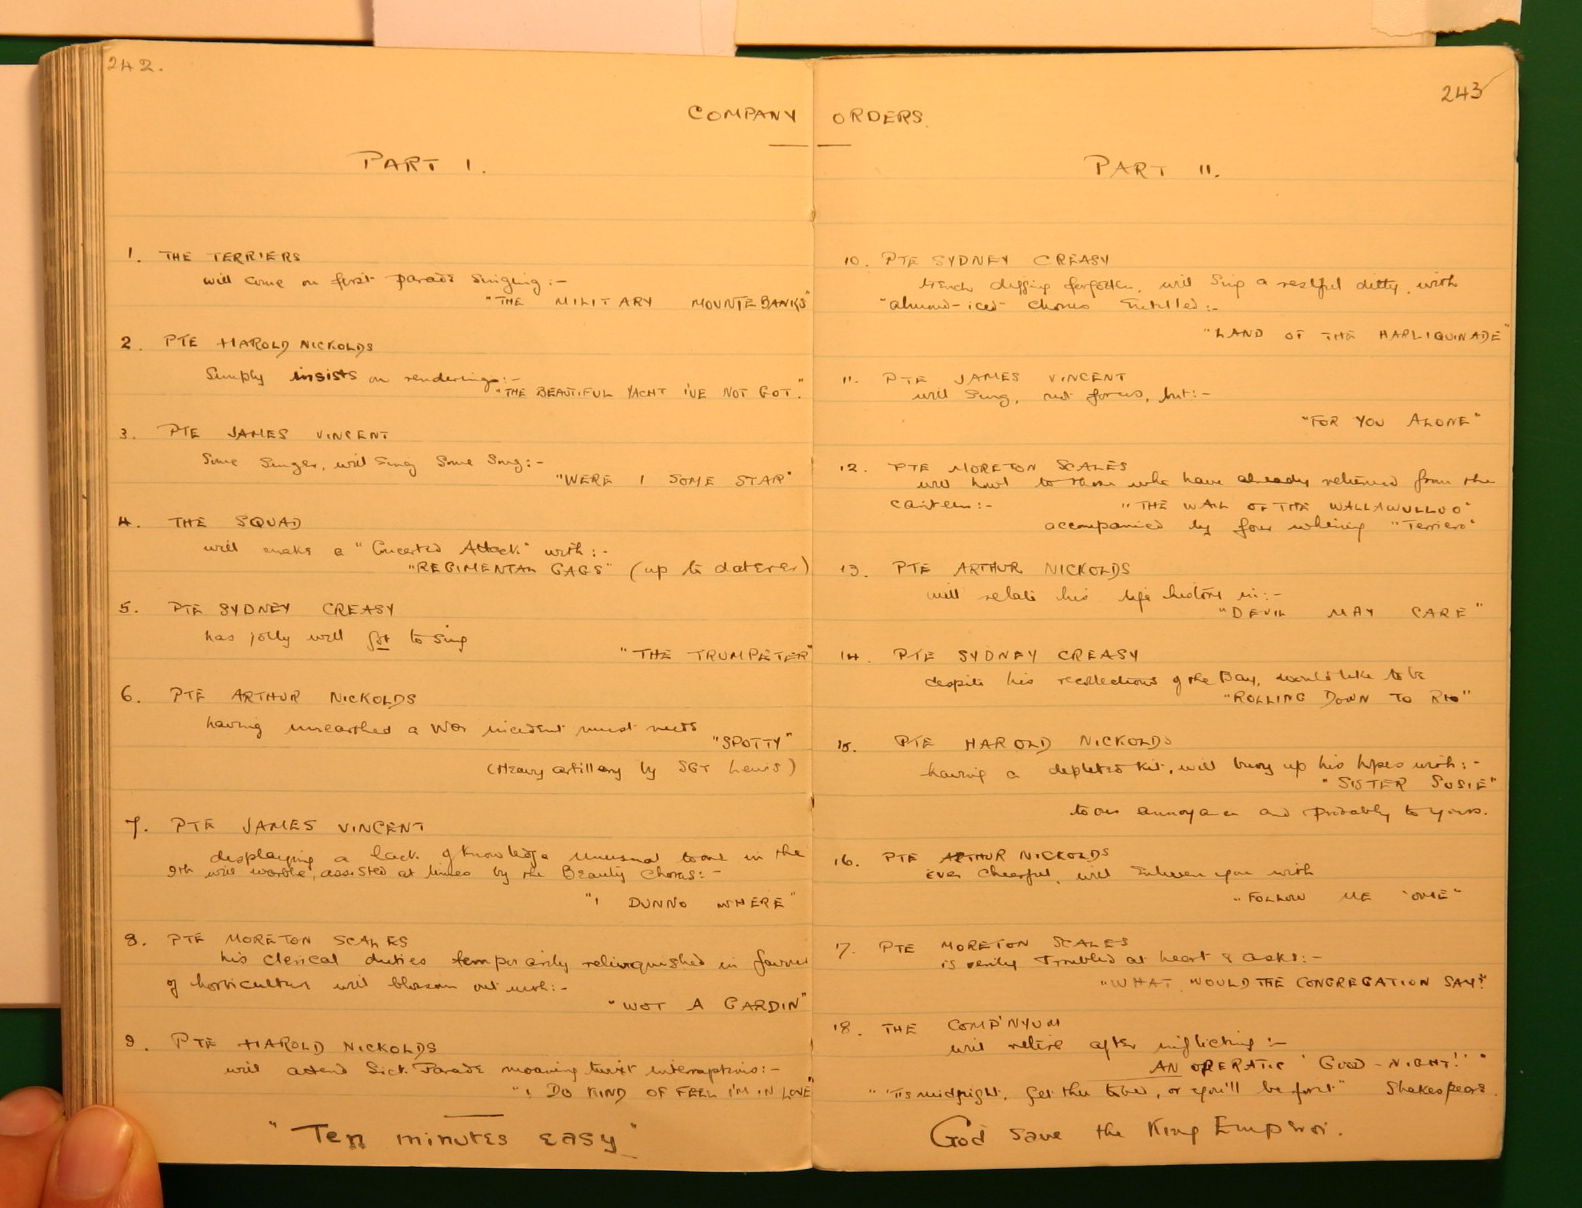 242.
COMPANY ORDERS.
PART I.
1. THE TERRIERS
will come on first parade singing:-
"THE MILITARY MOUNTEBANKS"
2. PTE HAROLD NICKOLDS
Simply insists on rendering:-
"THE BEAUTIFUL YACHT I'VE NOT GOT."
3. PTE JAMES VINCENT
Some Singer, will Sing Some Song:-
"WERE I SOME STAR"
4. THE SQUAD
will make a "Concerted Attack" with:-
"REGIMENTAL GAGS" (up to daterer)
5. PTE SYDNEY CREASY
has jolly well got to sing
"THE TRUMPETER"
6. PTE ARTHUR NICKOLDS
having unearthed a War incident must needs
"SPOTTY"
(Heavy artillery by SGT Lewis)
7. PTE JAMES VINCENT
displaying a lack of knowledge unusual to one in the
9th will warble, assisted at times by the Beauty Chorus:-
"I DUNNO WHERE"
8. PTE MORETON SCALES
his clerical duties temporarily relinquished in favour
of horticulture will blossom out with:-
"WOT A GARDIN"
9. PTE HAROLD NICKOLDS
will attend Sick Parade moaning twixt interruptions:-
"I DO KIND OF FEEL I'M IN LOVE"
"Ten minutes easy"
243
PART II.
10. PTE SYDNEY CREASY
trench digging forgotten, will Sing a restful ditty, with
"almond-iced" chorus Entitled:-
"LAND OF THE HARLIQUINADE"
11. PTE JAMES VINCENT
will Sing, not for us, but:-
"FOR YOU ALONE"
12. PTE MORETON SCALES
will howl to those who have already returned from the
canteen:- "THE WAIL OF THE WALLAWULLOO"
accompanied by four whining "Terriers"
13. PTE ARTHUR NICKOLDS
will relate his life history in:-
"DEVIL MAY CARE"
14. PTE SYDNEY CREASY
despite his recollections of the Bay, would like to be
"ROLLING DOWN TO RIO"
15. PTE HAROLD NICKOLDS
having a depleted kit, will buoy up his hopes with:-
"SISTER SUSIE"
to our annoyance and probably to yours.
16. PTE ARTHUR NICKOLDS
ever cheerful, will Enliven you with
"FOLLOW ME 'OME"
17. PTE MORETON SCALES
is verily troubled at heart & asks:-
"WHAT WOULD THE CONGREGATION SAY?"
18. THE COMP'NYUM
will retire after inflicting:-
AN OPERATIC 'GOOD-NIGHT!'"
"'Tis midnight, get thee to bed, or you'll be for it" Shakespeare.
God save the King Emperor.